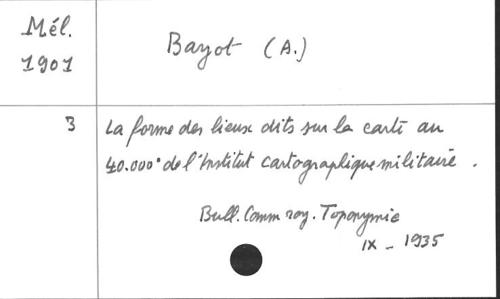 Mél.
1901
Bayot (A.)
3
La forme des lieux dits sur la carte au
40.000° de l'Institut cartographique militaire.
Bull. Comm roy. Toponymie
IX - 1935